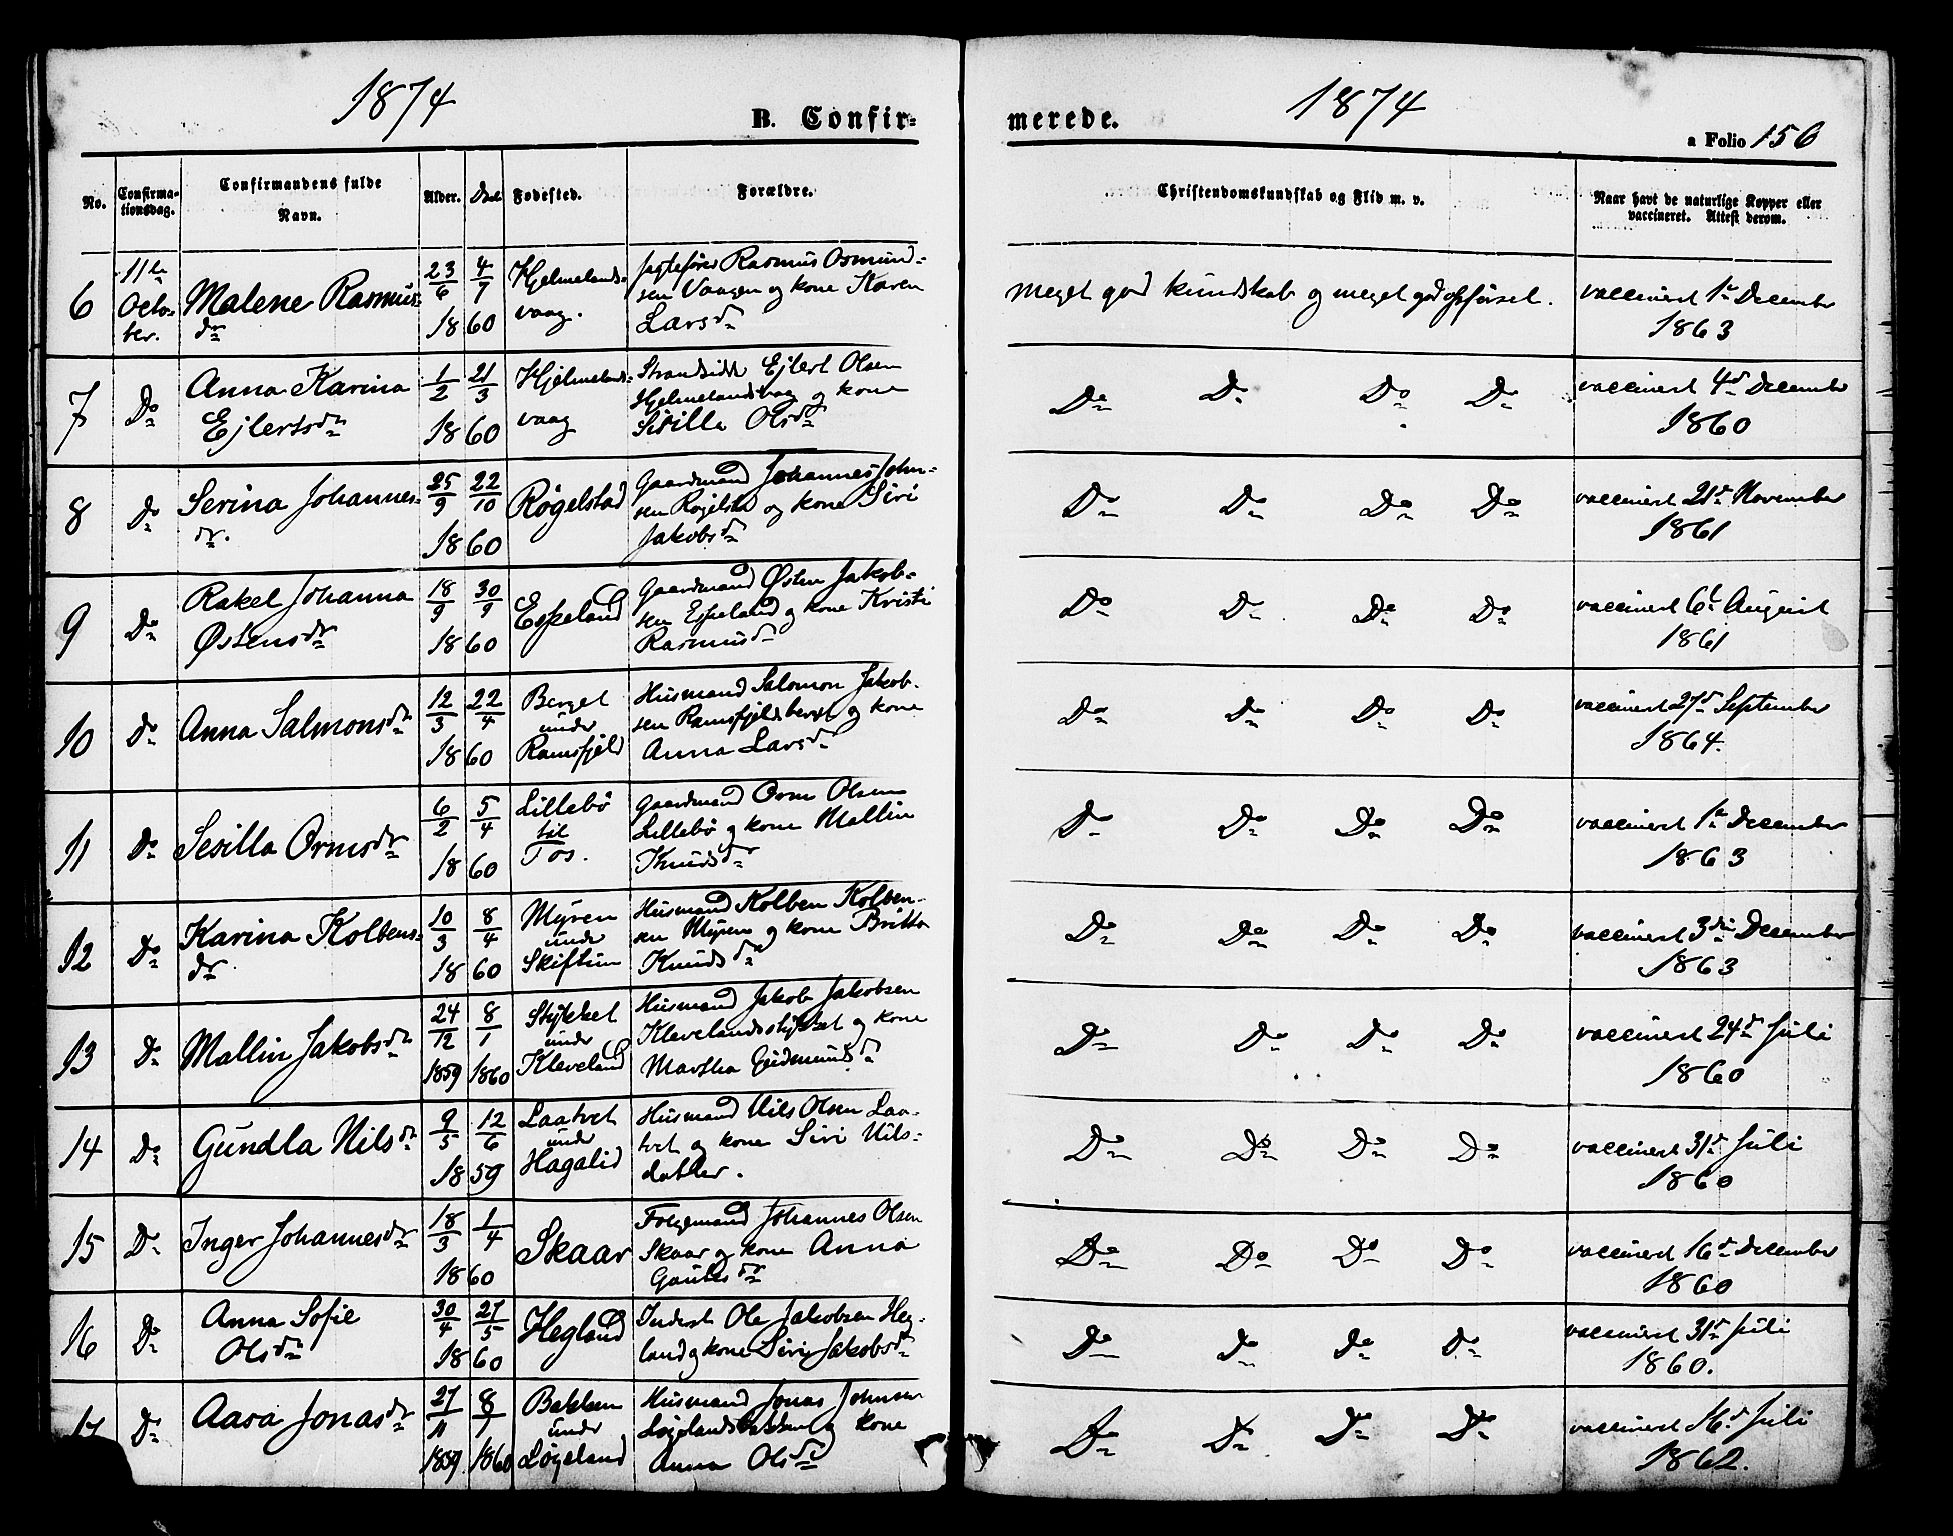 1874
B. Confir=
merede.
1874
a Folio 156
No.
Confirma-
tionsdag.
Confirmandens fulde
Navn.
Alder.
Fødested.
Forældre.
Christendomskundskab og Flid m. v.
Naar havt de naturlige Kopper eller
vaccineret. Attest derom.
6
11te
Octo-
ber.
Malene Rasmus-
dr
23/6 4/7
18 60
Hjelmelands-
vaag.
Jagtefører Rasmus Osmund-
sen Vaagen og kone Karen
Larsdr
Meget god kundskab og meget god opførsel.
vaccinert 1te December
1863
7
Do
Anna Karina
Ejlertsdr
1/2 21/3
18 60
Hjelmelands-
vaag
Strandsidd Ejlert Olsen
Hjelmelandsvaag og kone
Sisilla Olsdr
Do Do Do Do
vaccinert 4de December
1860
8
Do
Serina Johannes-
dr.
25/9 22/10
18 60
Røgelstad
Gaardmand Johannes John-
sen Røgelsta og kone Siri
Jakobsdr
Do Do Do Do
vaccinert 21de November
1861
9
Do
Rakel Johanna
Østensdr
18/9 30/9
18 60
Espeland
Gaardmand Østen Jakob-
sen Espeland og kone Kristi
Rasmusdr
Do Do Do Do
vaccinert 6te August
1861
10
Do
Anna Salmonsdr
12/3 22/4
18 60
Berget
under
Ramsfjeld
Husmand Salomon Jakob-
sen Ramsfjeldsberget og kone
Anna Larsdr
Do Do Do Do
vaccinert 27de September
1864.
11
Do
Sesilla Ormsdr
6/2 5/4
18 60
Lillebø
til
Tøs.
Gaardmand Orm Olsen
Lillebø og kone Mallin
Knudsdr
Do Do Do Do
vaccinert 1te December
1863
12
Do
Karina Kolbens-
dr
10/3 8/4
18 60
Myren
under
Skiftun
Husmand Kolben Kolben-
sen Myren og kone Britta
Knudsdr
Do Do Do Do
vaccinert 3die December
1863
13
Do
Mallin Jakobsdr
24/12 8/1
1859 1860
Stykket
under
Kleveland
Husmand Jakob Jakobsen
Klevelandsstykket og kone
Martha Geidmundsdr
Do Do Do Do
vaccinert 24de Juli
1860
14
Do
Gundla Nilsdr
9/5 12/6
18 59
Laatvet
under
Hagalid
Husmand Nils Olsen Laa-
tvet og kone Siri Nils-
datter.
Do Do Do Do
vaccinert 31te Juli
1860
15
Do
Inger Johannesdr
18/3 1/4
18 60
Skaar
Folgemand Johannes Olsen
Skaar og kone Anna
Gautesdr
Do Do Do Do
vaccinert 16de December
1860
16
Do
Anna Sofie
Olsdr
30/4 27/5
18 60
Hegland
Inderst Ole Jakobsen Heg-
land og kone Siri Jakobsdr
Do Do Do Do
vaccinert 31te Juli
1860.
17
Do
Aasa Jonasdr
27/11 8/1
1859. 1860
Bakken
under
Løgeland
Husmand Jonas Johnsen
Løgelandsbakken og kone
Anna Olsdr
Do Do Do Do
vaccinert 16de Juli
1862.